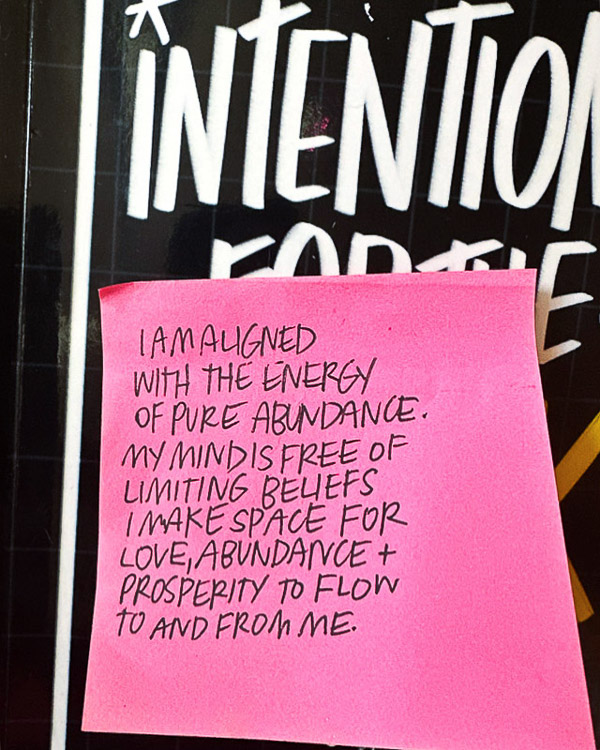 * INTENTION
FOR THE
I AM ALIGNED
WITH THE ENERGY
OF PURE ABUNDANCE.
MY MIND IS FREE OF
LIMITING BELIEFS
I MAKE SPACE FOR
LOVE, ABUNDANCE +
PROSPERITY TO FLOW
TO AND FROM ME.